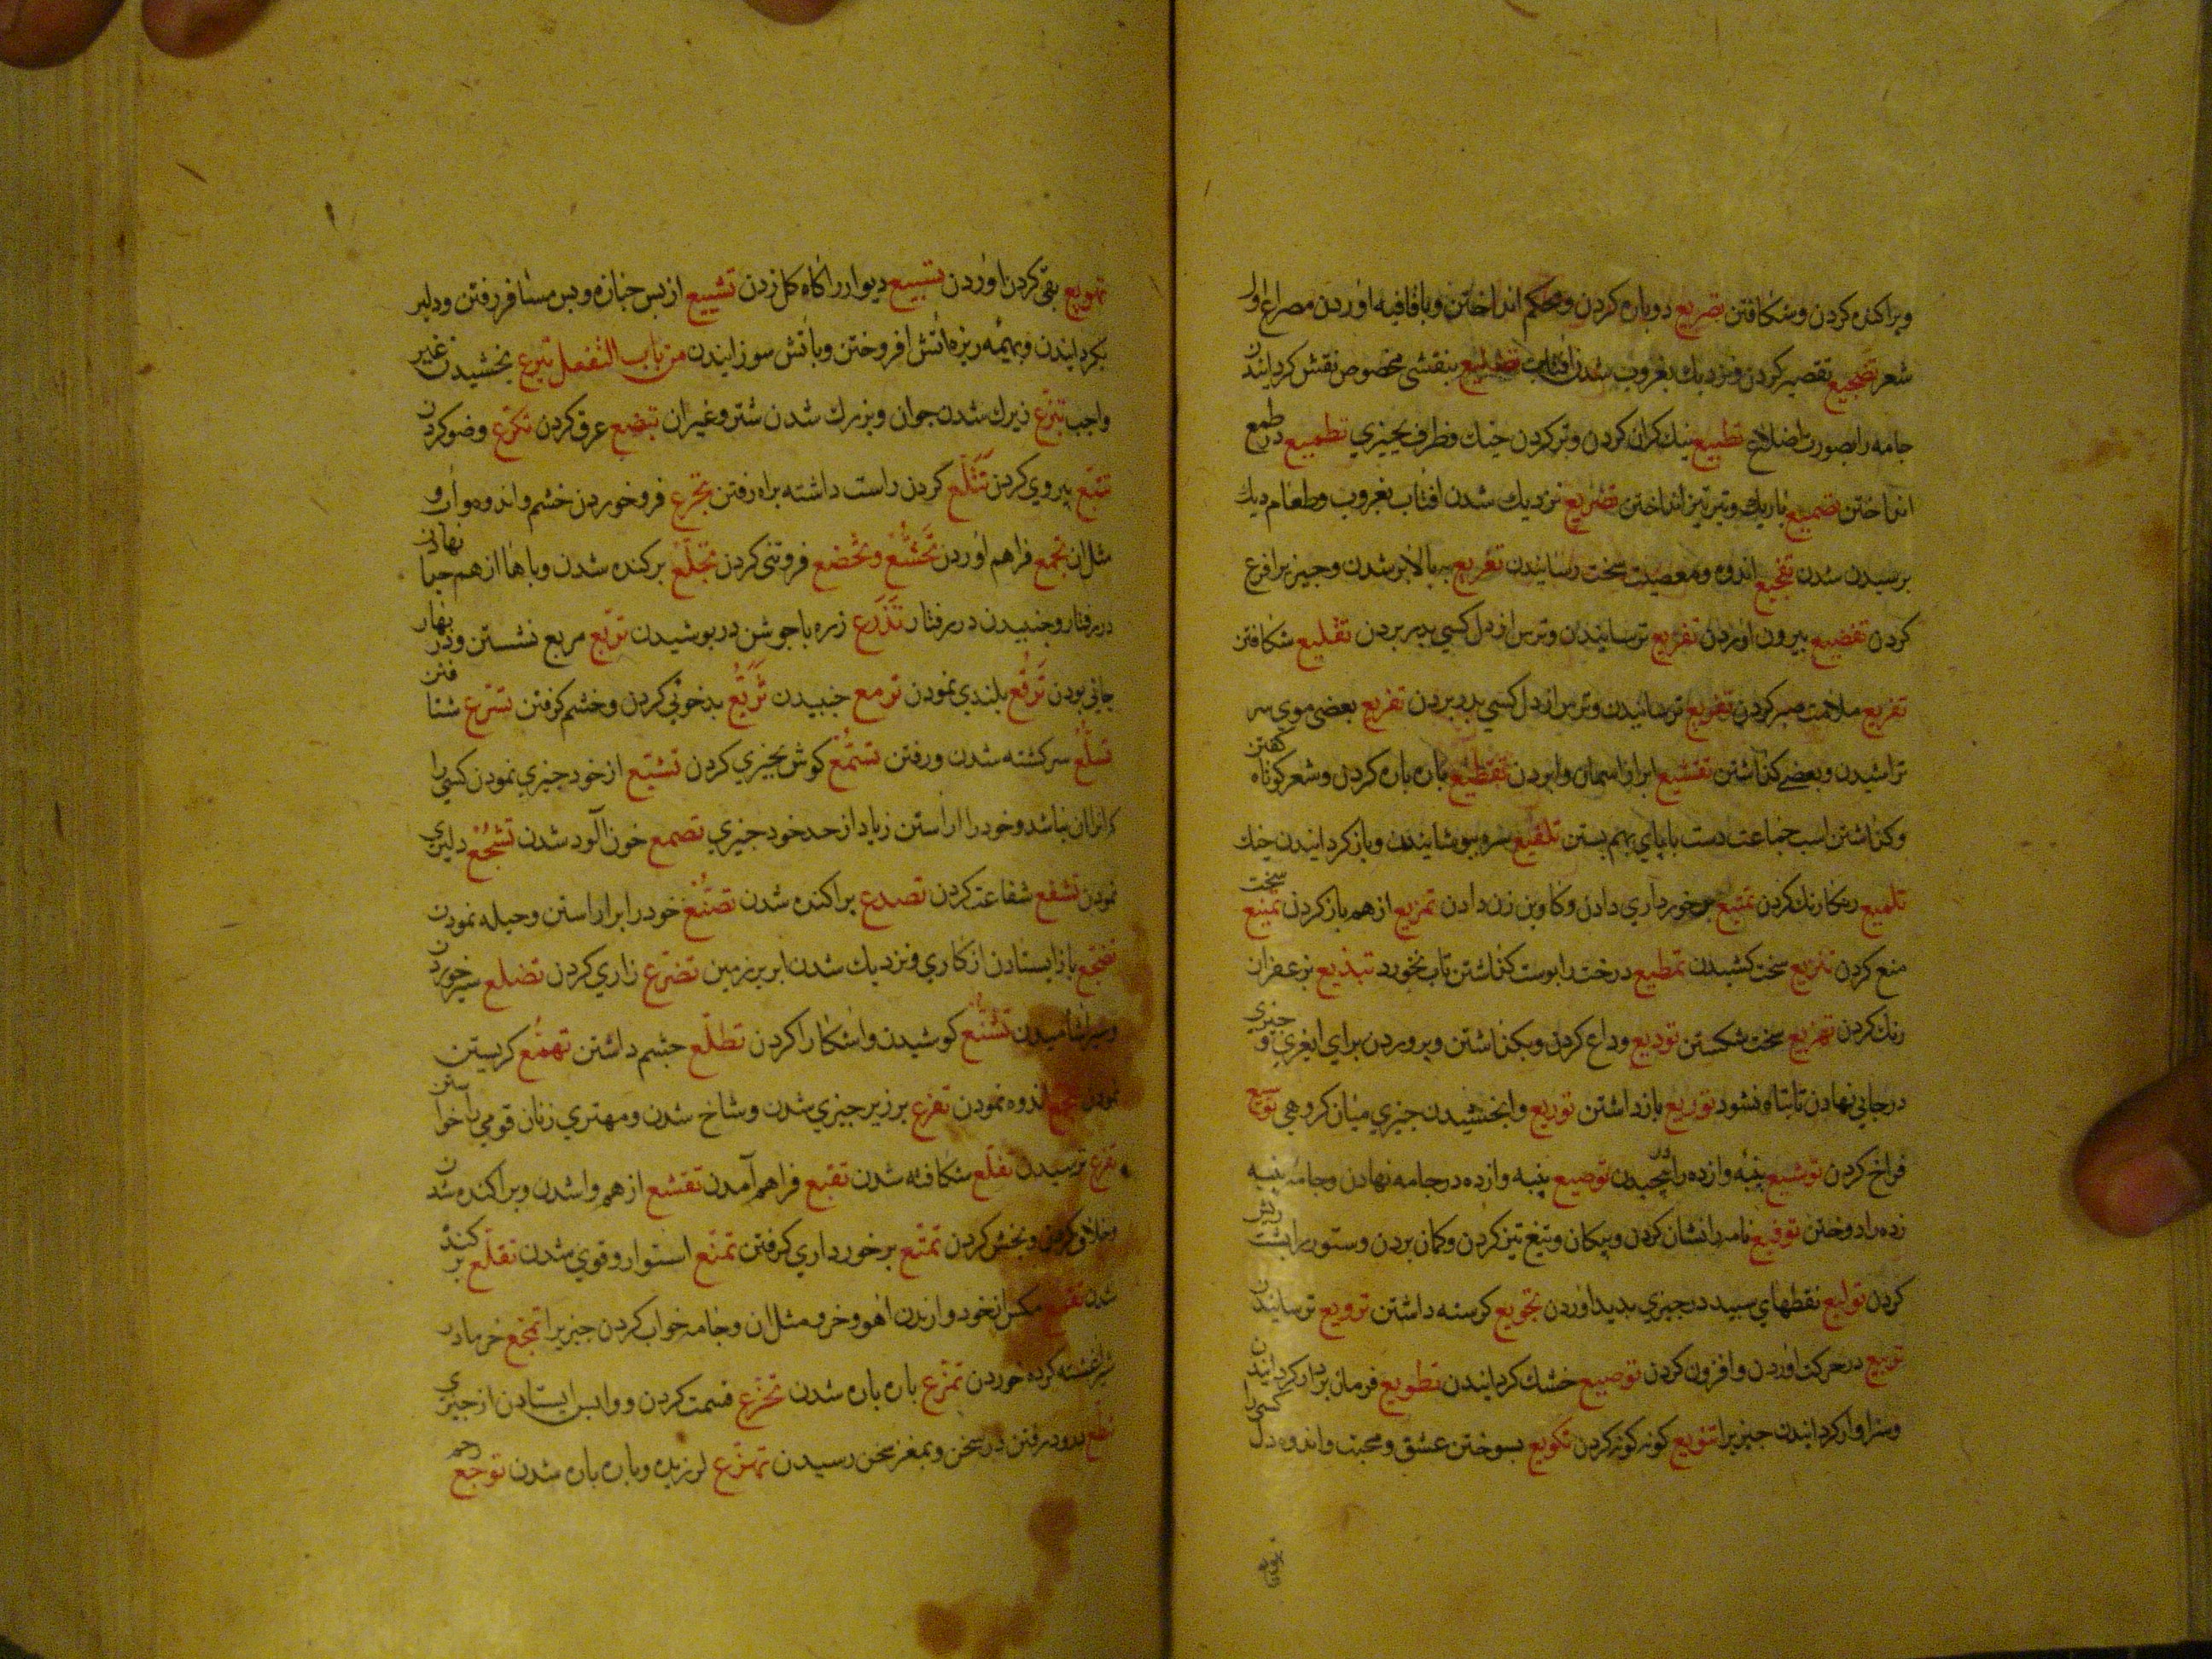 وپراکنده کردن وشکافتن تصریع دوباره کردن ومحکم انداختن وباقافیه اوردن مصراع اول
شعر تضجیع تقصیر کردن ونزدیك بغروب شدن افتاب تضلیع بنقشی مخصوص نقش کردانیدن
جامه را بصورت اضلاع تطبیع نیك کران کردن وپر کردن خیك وظرف بچیزي تطمیع در طمع
انداختن تضریع نزدیك شدن افتاب بغروب وطعام دیك
برسیدن شدن تفجیع اندوه ومصیبت سخت رسانیدن تفریع به بالا بر شدن وچیزیرا فرع
کردن تفضیع بیرون اوردن تفزیع ترسانیدن وترس از دل کسي بدر بردن تفلیع شکافتن
تقریع ملامت کردن تفزیع ترسانیدن وترس از دل کسي بدر بردن تقزیع بعضي موي سر
تراشیدن وبعضي کذاشتن تقشیع ابر از اسمان وابردن تقطیع باره باره کردن وشعر کوتاه کفتن
وکذاشتن اسب جماعت دست با پاي بهم بستن تلفیع سر پوشانیدن وباز کردانیدن خیك
تلمیع رنکارنك کردن تمتیع برخورداري دادن وکاوین زن دادن تمزیع از هم باز کردن تمنیع سخت
منع کردن تنزیع سخت کشیدن تمظیع درخت را بوست کذاشتن تاب نخورد تبدیع بزعفران
رنك کردن تهزیع سخت شکستن تودیع وداع کردن وبکذاشتن وپروردن براي چیزي و
در جایي نهادن تا تباه نشود توریع باز داشتن توزیع وابخشیدن چیزي میان کروهي توسیع
فراخ کردن توشیع پنبه وازده را پیچیدن توضیع پنبه وازده در جامه نهادن وجامه پنبه
زده را دوختن توقیع نامه را نشان کردن وپیکان وتیغ تیز کردن وکمان بردن وستور را پشت ریش
کردن تولیع نقطهاي سپید در چیزي بدید اوردن تجویع کرسنه داشتن ترویع ترسانیدن
تریيع در حرکت اوردن وافزون کردن تصویع خشك کردانیدن تطویع فرمان بردار کردانیدن کسي را
وسزاوار کردانیدن چیزیرا تنویع کونه کونه کردن تکویع بسوختن عشق ومحبت واندوه دل
تهویع بقي کردن اوردن تسییع دیوار را کاه کل زدن تشییع از پس جنازه وپس مسافر رفتن ودلیر
بکردانیدن وبهیمه ریزه باتش افروختن وباتش سوزانیدن من باب التفعل تبرع بخشیدن غیر
واجب تبزع زیرك شدن جوان وبزرك شدن شتر وغیر ان تبضع عرق کردن تکرع وضو کردن
تتبع پیروي کردن تتلع کردن راست داشته براه رفتن تجرع فرو خوردن خشم واندوه واب و
مثل ان تجمع فراهم اوردن تخشع وتخضع فروتني کردن تخلع برکنده شدن وپاها از هم جدا نهادن
در رفتار وجنبیدن در رفتار تذرع زره یا جوشن در پوشیدن تربع مربع نشستن ودر بهار
جایي بودن ترفع بلندي نمودن ترمع جنبیدن تزبع بدخوئي کردن وخشم کرفتن تسرع شتافتن
تسکع سرکشته شدن ورفتن تسمع کوش بچیزي کردن تشبع از خود چیزي نمودن کسي را
که انرا ان نباشد وخود را اراستن زیاد از حد خود چیزي تصمع خون آلود شدن تشجع دلیري
نمودن تشفع شفاعت کردن تصدع پراکنده شدن تصنع خود را براراستن وحیله نمودن
تضجع باز ایستادن از کاري ونزدیك شدن ابر بزمین تضرع زاري کردن تضلع سیر خوردن
وسیر اشامیدن تشنع کوشیدن واشکارا کردن تطلع چشم داشتن تهمع کریستن
نمودن تفجع اندوه نمودن تفرع بر زبر چیزي شدن وشاخ شاخ شدن ومهتري زنان قومي را خواستن
تفزع ترسیدن تفلع شکافته شدن تقبع فراهم آمدن تقشع از هم واشدن وپراکنده شدن
وخلاق کردن وبخش کردن تمتع برخورداري کرفتن تمنع استوار وقوي شدن تقلع برکنده
شدن تقمع مکس از خود وازدن اهو وخر ومثل ان وجامه خواب کردن چیزیرا تمجع خرما در
شیر اغشته کرده خوردن تمزع باره باره شدن تجزع قسمت کردن وواپس ایستادن از چیزي
تنطع دور در رفتن در سخن وبمغز سخن رسیدن تهزع لرزیده وپاره پاره شدن توجع رحم
تهویع